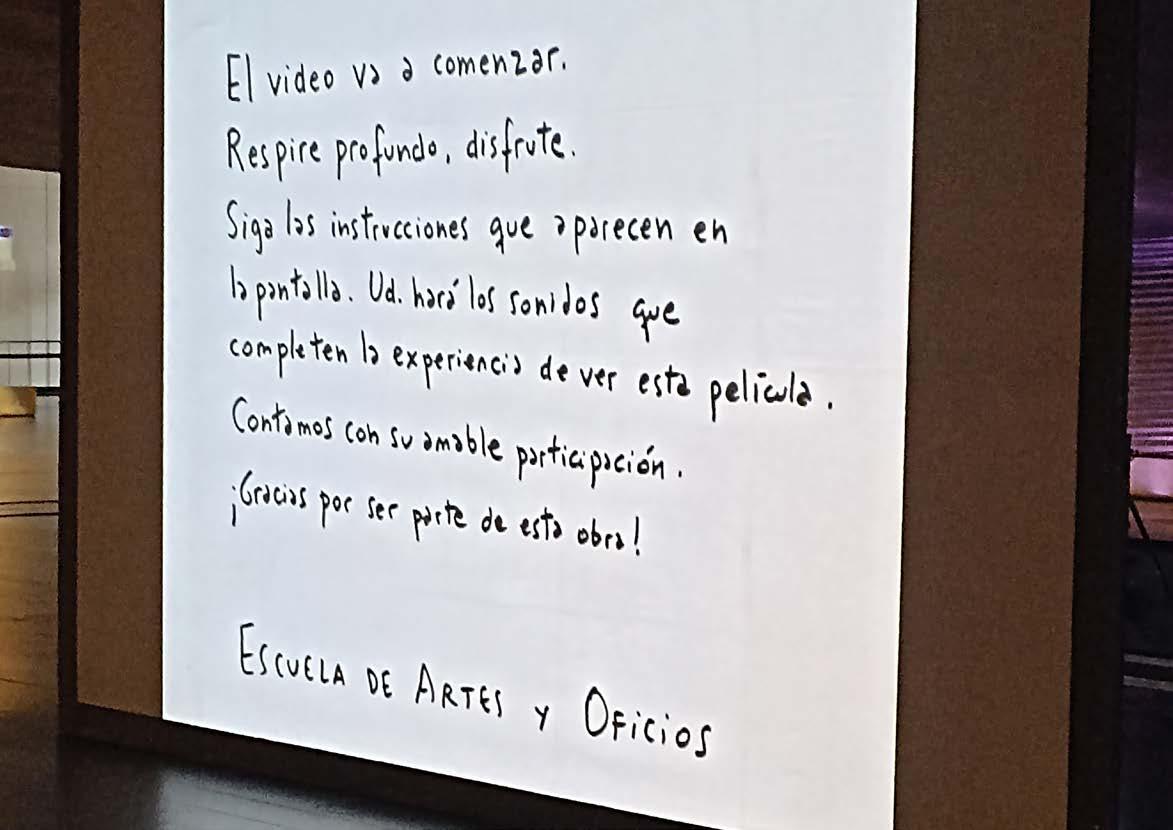 El video va a comenzar.
Respire profundo, disfrute.
Siga las instrucciones que aparecen en
la pantalla. Ud. hará los sonidos que
completen la experiencia de ver esta película.
Contamos con su amable participación.
¡Gracias por ser parte de esta obra!
ESCUELA DE ARTES Y OFICIOS